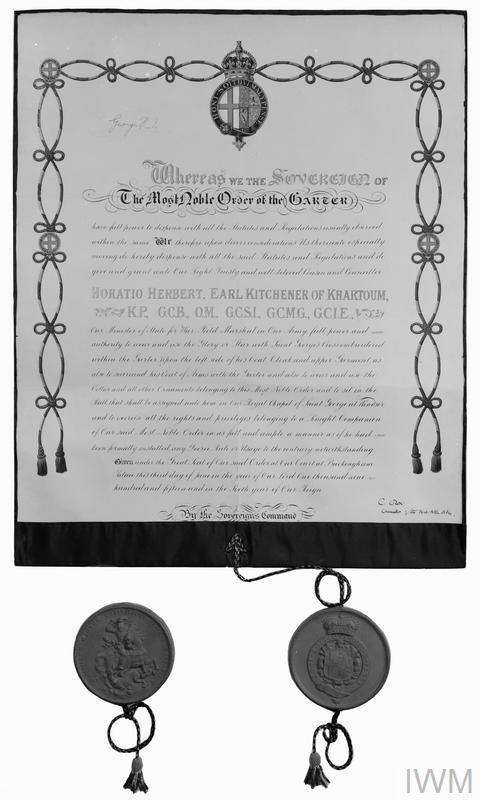 HONI SOIT QUI MAL Y PENSE
George R.I.
Whereas WE THE SOVEREIGN OF
The Most Noble Order of the GARTER
have full power to dispense with all the Statutes and Regulations usually observed
within the same We therefore upon divers considerations Us thereunto especially
moving do hereby dispense with all the said Statutes and Regulations and do
give and grant unto Our Right Trusty and well-beloved Cousin and Councillor
HORATIO HERBERT, EARL KITCHENER OF KHARTOUM,
K.P., G.C.B., O.M., G.C.S.I., G.C.M.G., G.C.I.E.,
Our Minister of State for War Field Marshal in Our Army full power and
authority to wear and use the Glory or Star with Saint George's Cross embroidered
within the Garter upon the left side of his Coat, Cloak and upper Garment as
also to surround his Coat of Arms with the Garter and also to wear and use the
Collar and all other Ornaments belonging to this Most Noble Order and to sit in the
Stall that shall be assigned unto him in Our Royal Chapel of Saint George at Windsor
and to exercise all the rights and privileges belonging to a Knight Companion
of Our said Most Noble Order in as full and ample a manner as if he had
been formally installed any Decree Rule or Usage to the contrary notwithstanding.
Given under the Great Seal of Our said Order at Our Court at Buckingham
Palace this third day of June in the year of Our Lord One thousand nine
hundred and fifteen and in the Sixth year of Our Reign
By the Sovereign's Command
IWM